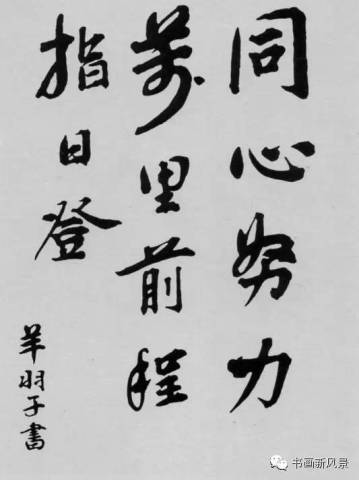 同心努力
萬里前程
指日登
羊羽子書
书画新风景